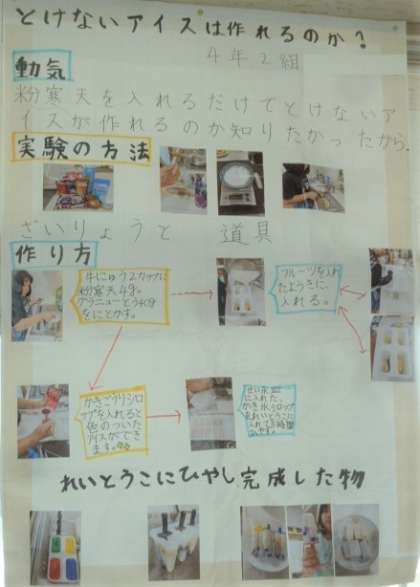 とけないアイスは作れるのか?
4年2組
動気
粉寒天を入れるだけでとけないア
イスが作れるのか知りたかったから。
実験の方法
ざいりょうと 道具
作り方
牛にゅう2カップに
粉寒天4g。
グラニューとう40g
をにとかす。
フルーツを入れ
たようきに、
入れる。
かきごおりシロ
ップを入れると
色のついた
アイスができ
ます。
せい氷皿
に入れた。
かき氷シロップ
れいとうこに
入れて
やす。
れいとうこにひやし完成した物